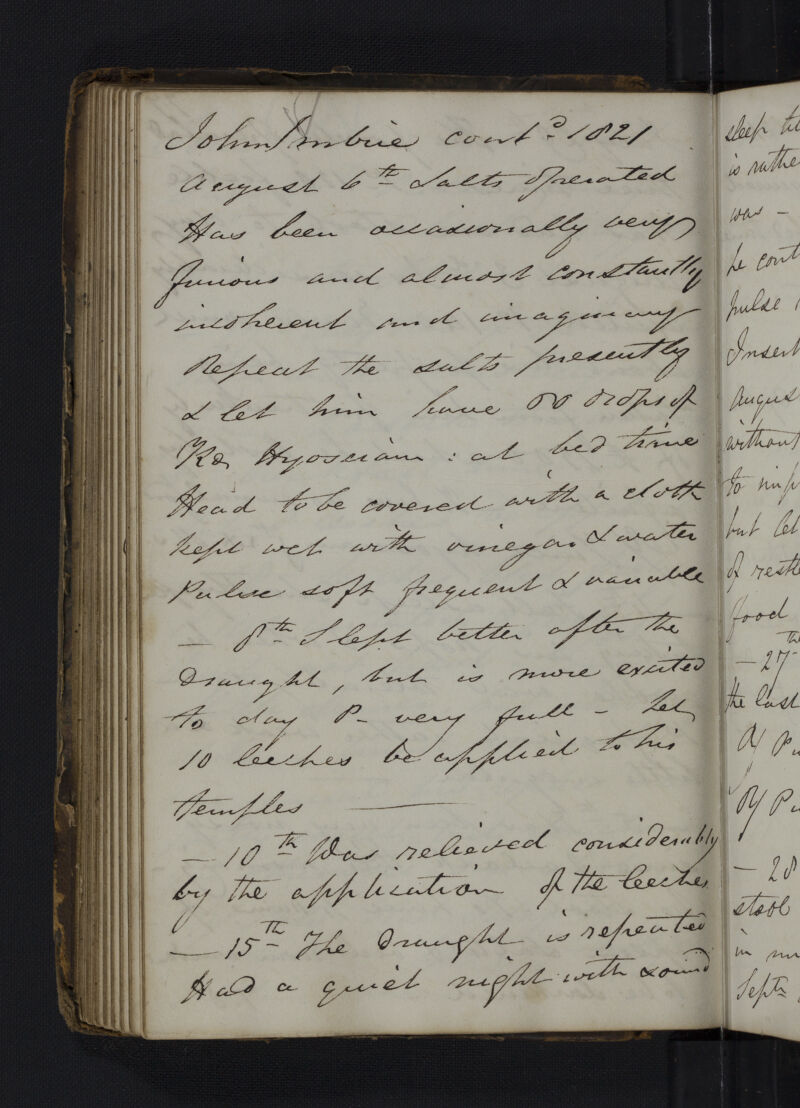 John Imbrie cont.d 1821
August 6th Salts operated
Has been occasionally very
furious and almost constantly
incoherent and imaginary
Repeat the salts presently
& let him have drops of
Hyosciam: at bed time
Head to be covered with a cloth
kept wet with vinegar & water
Pulse soft frequent & variable
— 8th Slept better after the
Draught, but is more excited
to day P– very full – Let
10 leeches be applied to his
temples —
— 10th Was relieved considerably
by the application of the leeches
— 15th The Draught is repeated
Had a quiet night with sound
sleep
is rathe
was –
he cont
pulse
Insert
August
without
to imp
but let
of restl
food
— 27th
the last
— 28
stool
in
Septr